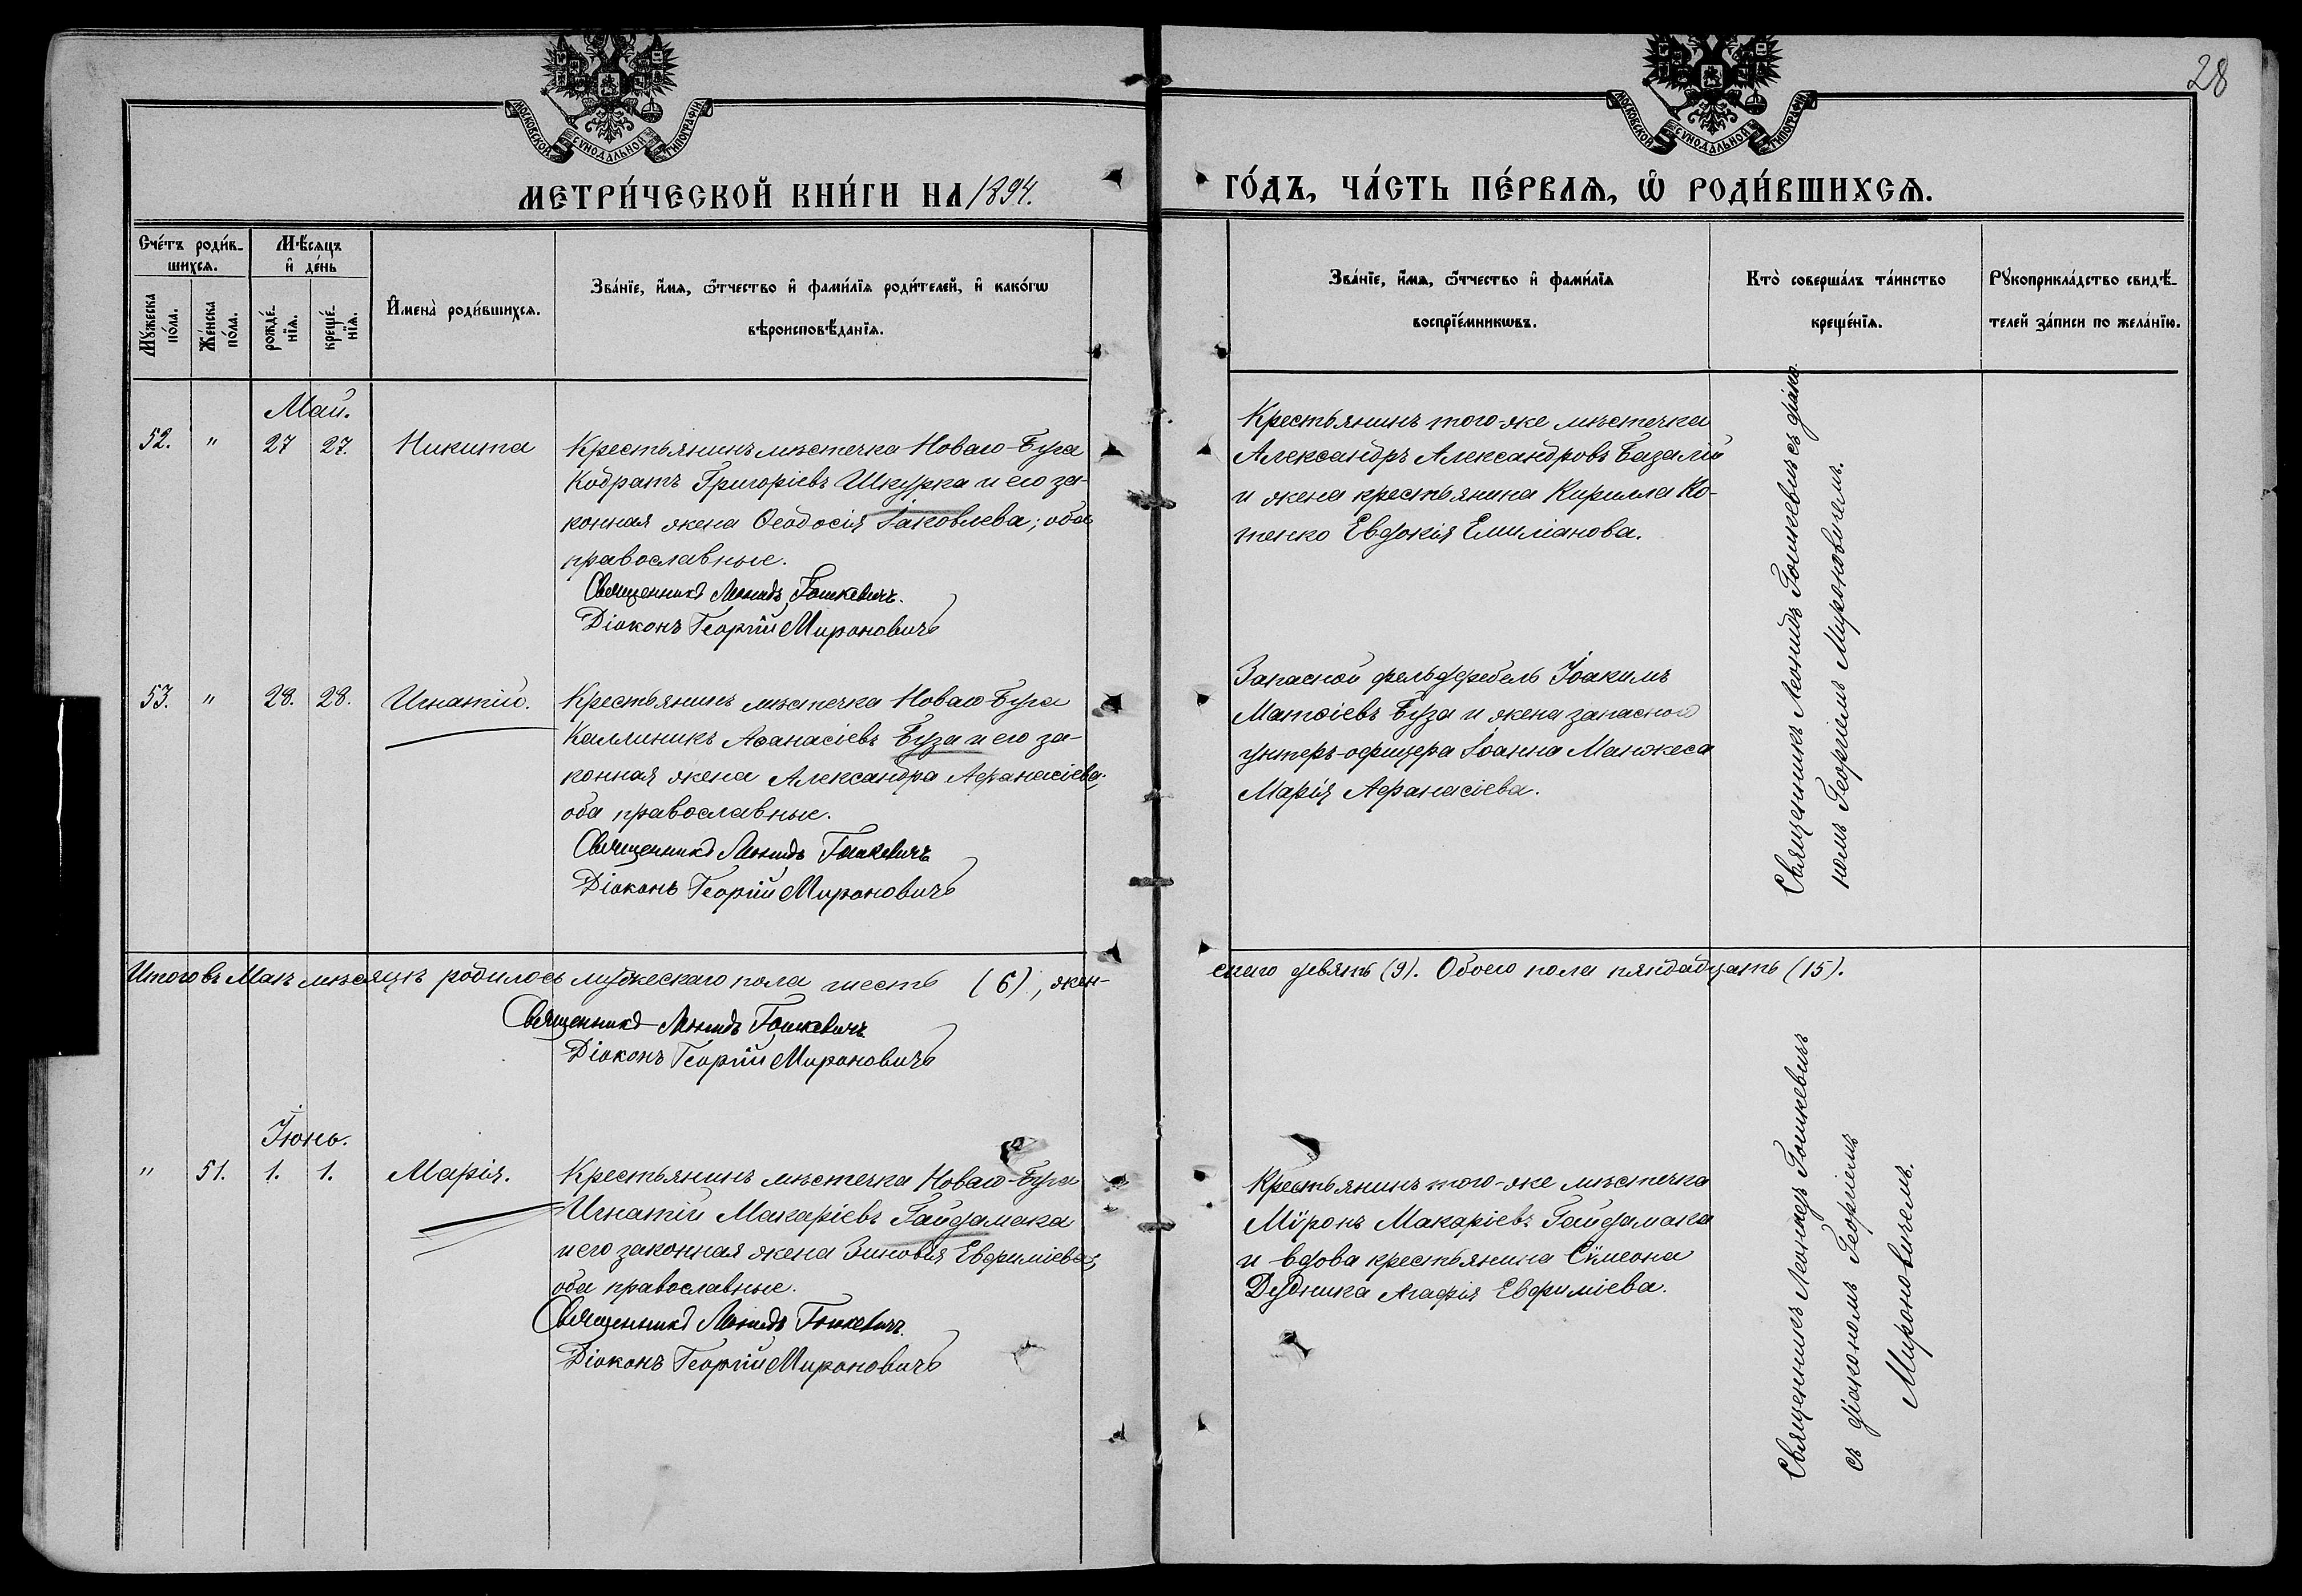 28
МОСКОВСКОЙ СѴНОДАЛЬНОЙ ТИПОГРАФІИ
МОСКОВСКОЙ СѴНОДАЛЬНОЙ ТИПОГРАФІИ
МЕТРИ́ЧЕСКОЙ КНИ́ГИ НА 1894.
ГО́ДЪ, ЧА́СТЬ ПЕ́РВАѦ, Ѡ҆ РОДИ́ВШИХСѦ.
Сче́тъ роди́в-
шихсѧ.
Мѣ́сѧцъ
и҆ де́нь
Мꙋ́жеска
по́ла.
Же́нска
по́ла.
рожде́-
нїѧ.
креще́-
нїѧ.
И҆мена̀ роди́вшихсѧ.
Зва́нїе, и҆́мѧ, ѻ҆́тчество и҆ фами́лїѧ роди́телей, и҆ како́гѡ
вѣроисповѣ́данїѧ.
Зва́нїе, и҆́мѧ, ѻ҆́тчество и҆ фами́лїѧ
воспрїе́мникѡвъ.
Кто̀ соверша́лъ та́инство
креще́нїѧ.
Рꙋкоприкла́дство свидѣ́-
телей за́писи по жела́нїю.
Май.
52. " 27 27. Никита
Крестьянинъ мѣстечка Новаго-Буга
Кодратъ Григоріевъ Шкурка и его за-
конная жена Ѳеодосія Іаковлева; оба
православные.
Священникъ Леонидъ Гошкевичъ.
Діаконъ Георгій Мироновичъ
Крестьянинъ того-же мѣстечка
Александръ Александровъ Базалій
и жена крестьянина Кирилла Ко-
тенко Евдокія Емиліанова.
Священникъ Леонидъ Гошкевичъ съ діако-
номъ Георгіемъ Мироновичемъ.
53. " 28. 28. Игнатій.
Крестьянинъ мѣстечка Новаго-Буга
Каллиникъ Аѳанасіевъ Буза и его за-
конная жена Александра Афанасіева;
оба православные.
Священникъ Леонидъ Гошкевичъ
Діаконъ Георгій Мироновичъ
Запасной фельдфебель Іоакимъ
Матѳіевъ Буза и жена запасного
унтеръ-офицера Іоанна Манжеса
Марія Афанасіева.
Итого въ Маѣ мѣсяцѣ родилось мужескаго пола шесть (6), жен-
скаго девять (9). Обоего пола пятнадцать (15).
Священникъ Леонидъ Гошкевичъ
Діаконъ Георгій Мироновичъ
Іюнь.
" 51. 1. 1. Марія.
Крестьянинъ мѣстечка Новаго-Буга
Игнатій Макаріевъ Гайдамака
и его законная жена Зиновія Евфиміева;
оба православные.
Священникъ Леонидъ Гошкевичъ.
Діаконъ Георгій Мироновичъ
Крестьянинъ того-же мѣстечка
Мѵронъ Макаріевъ Гайдамака
и вдова крестьянина Сѵмеона
Дудника Агафія Евфиміева.
Священникъ Леонидъ Гошкевичъ
съ діакономъ Георгіемъ
Мироновичемъ.